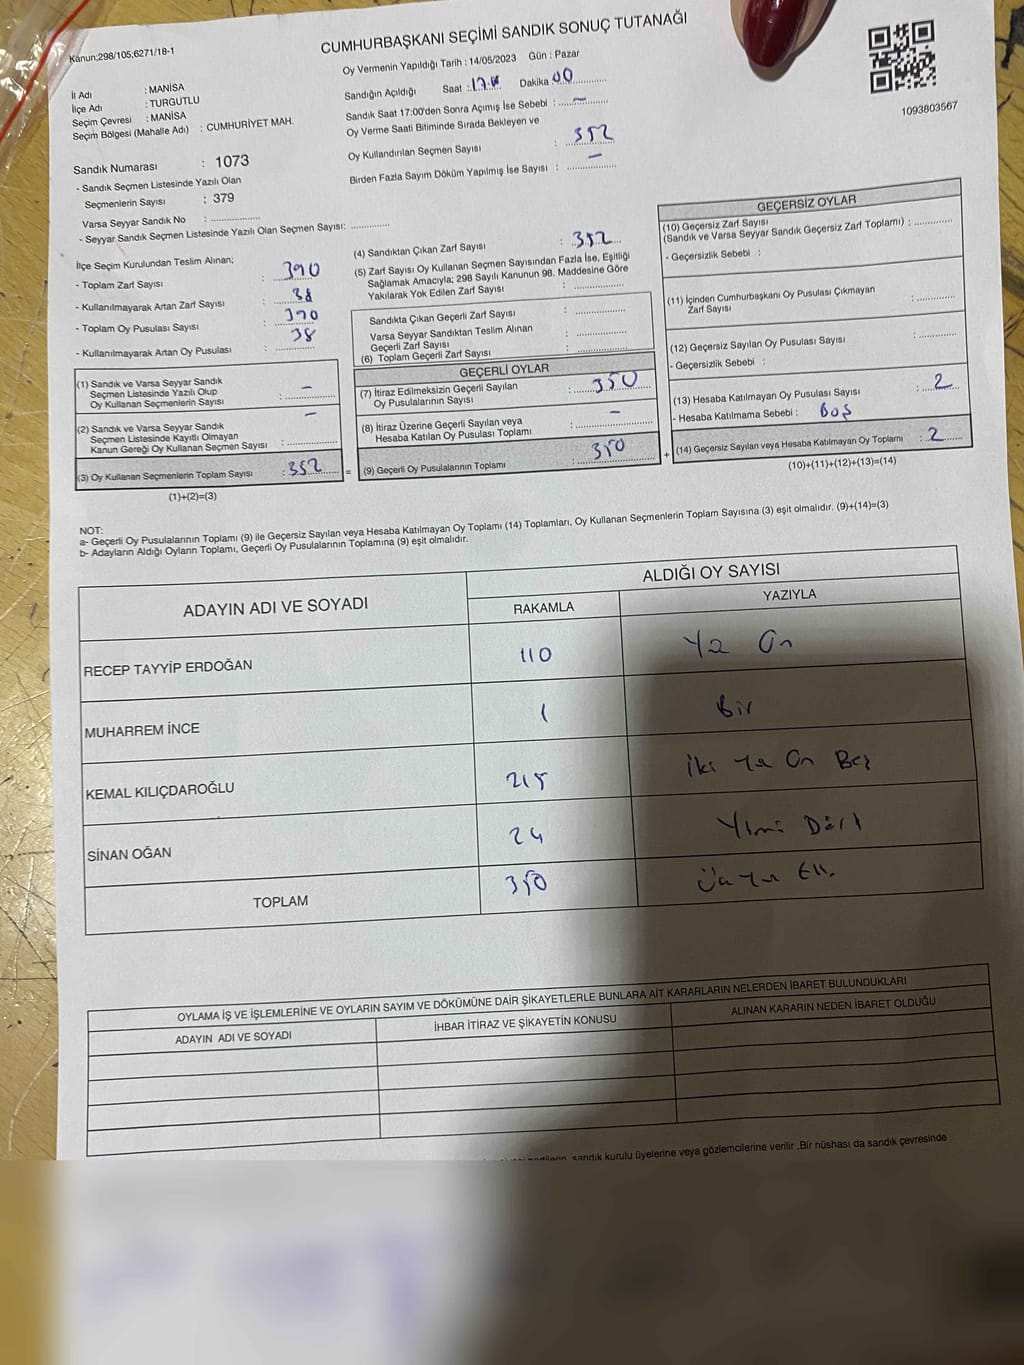 Kanun;298/105;6271/18-1
CUMHURBAŞKANI SEÇİMİ SANDIK SONUÇ TUTANAĞI
Oy Vermenin Yapıldığı Tarih : 14/05/2023 Gün : Pazar
1093803567
İl Adı : MANİSA
İlçe Adı : TURGUTLU
Seçim Çevresi : MANİSA
Seçim Bölgesi (Mahalle Adı) : CUMHURİYET MAH.
Sandığın Açıldığı Saat : Dakika 00
Sandık Saat 17:00'den Sonra Açımış İse Sebebi : –
Oy Verme Saati Bitiminde Sırada Bekleyen ve
Oy Kullandırılan Seçmen Sayısı : 352
Birden Fazla Sayım Döküm Yapılmış İse Sayısı : –
Sandık Numarası : 1073
- Sandık Seçmen Listesinde Yazılı Olan
Seçmenlerin Sayısı : 379
Varsa Seyyar Sandık No :
- Seyyar Sandık Seçmen Listesinde Yazılı Olan Seçmen Sayısı:
İlçe Seçim Kurulundan Teslim Alınan;
- Toplam Zarf Sayısı : 390
- Kullanılmayarak Artan Zarf Sayısı : 38
- Toplam Oy Pusulası Sayısı : 390
- Kullanılmayarak Artan Oy Pusulası : 38
(4) Sandıktan Çıkan Zarf Sayısı : 352
(5) Zarf Sayısı Oy Kullanan Seçmen Sayısından Fazla İse, Eşitliği
Sağlamak Amacıyla; 298 Sayılı Kanunun 98. Maddesine Göre
Yakılarak Yok Edilen Zarf Sayısı :
Sandıkta Çıkan Geçerli Zarf Sayısı :
Varsa Seyyar Sandıktan Teslim Alınan
Geçerli Zarf Sayısı :
(6) Toplam Geçerli Zarf Sayısı :
(1) Sandık ve Varsa Seyyar Sandık
Seçmen Listesinde Yazılı Olup
Oy Kullanan Seçmenlerin Sayısı : –
(2) Sandık ve Varsa Seyyar Sandık
Seçmen Listesinde Kayıtlı Olmayan
Kanun Gereği Oy Kullanan Seçmen Sayısı : –
(3) Oy Kullanan Seçmenlerin Toplam Sayısı : 352 =
(1)+(2)=(3)
GEÇERLİ OYLAR
(7) İtiraz Edilmeksizin Geçerli Sayılan
Oy Pusulalarının Sayısı : 350
(8) İtiraz Üzerine Geçerli Sayılan veya
Hesaba Katılan Oy Pusulası Toplamı : –
(9) Geçerli Oy Pusulalarının Toplamı : 350 +
GEÇERSİZ OYLAR
(10) Geçersiz Zarf Sayısı
(Sandık ve Varsa Seyyar Sandık Geçersiz Zarf Toplamı) :
- Geçersizlik Sebebi :
(11) İçinden Cumhurbaşkanı Oy Pusulası Çıkmayan
Zarf Sayısı :
(12) Geçersiz Sayılan Oy Pusulası Sayısı :
- Geçersizlik Sebebi :
(13) Hesaba Katılmayan Oy Pusulası Sayısı : 2
- Hesaba Katılmama Sebebi : Boş
(14) Geçersiz Sayılan veya Hesaba Katılmayan Oy Toplamı : 2
(10)+(11)+(12)+(13)=(14)
NOT:
a- Geçerli Oy Pusulalarının Toplamı (9) ile Geçersiz Sayılan veya Hesaba Katılmayan Oy Toplamı (14) Toplamları, Oy Kullanan Seçmenlerin Toplam Sayısına (3) eşit olmalıdır. (9)+(14)=(3)
b- Adayların Aldığı Oyların Toplamı, Geçerli Oy Pusulalarının Toplamına (9) eşit olmalıdır.
ADAYIN ADI VE SOYADI
ALDIĞI OY SAYISI
RAKAMLA YAZIYLA
RECEP TAYYİP ERDOĞAN 110 Yüz On
MUHARREM İNCE 1 Bir
KEMAL KILIÇDAROĞLU 215 İki Yüz On Beş
SİNAN OĞAN 24 Yirmi Dört
TOPLAM 350 Üç Yüz Elli
OYLAMA İŞ VE İŞLEMLERİNE VE OYLARIN SAYIM VE DÖKÜMÜNE DAİR ŞİKAYETLERLE BUNLARA AİT KARARLARIN NELERDEN İBARET BULUNDUKLARI
ADAYIN ADI VE SOYADI İHBAR İTİRAZ VE ŞİKAYETİN KONUSU ALINAN KARARIN NEDEN İBARET OLDUĞU
sandık kurulu üyelerine veya gözlemcilerine verilir .Bir nüshası da sandık çevresinde